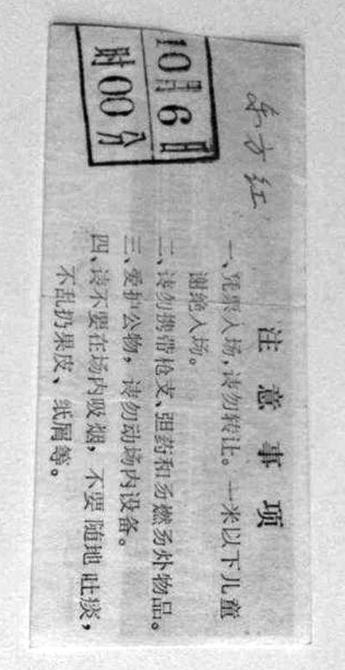 东方红
10月6日
时00分
注意事项
一、凭票入场，请勿转让。一米以下儿童
谢绝入场。
二、请勿携带枪支、弹药和易燃易炸物品。
三、爱护公物，请勿动场内设备。
四、请不要在场内吸烟，不要随地吐痰，
不乱扔果皮、纸屑等。